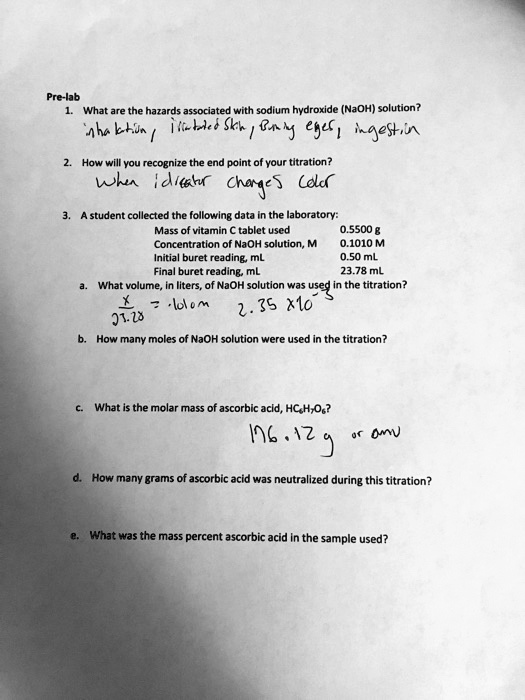 Pre-lab
1. What are the hazards associated with sodium hydroxide (NaOH) solution?
inhalation, irritated skin, Burning eyes, ingestion
2. How will you recognize the end point of your titration?
when idicator changes color
3. A student collected the following data in the laboratory:
Mass of vitamin C tablet used 0.5500 g
Concentration of NaOH solution, M 0.1010 M
Initial buret reading, mL 0.50 mL
Final buret reading, mL 23.78 mL
a. What volume, in liters, of NaOH solution was used in the titration?
x/23.28 = .1010m 2.35 x10⁻³
b. How many moles of NaOH solution were used in the titration?
c. What is the molar mass of ascorbic acid, HC₆H₇O₆?
176.12 g or amu
d. How many grams of ascorbic acid was neutralized during this titration?
e. What was the mass percent ascorbic acid in the sample used?